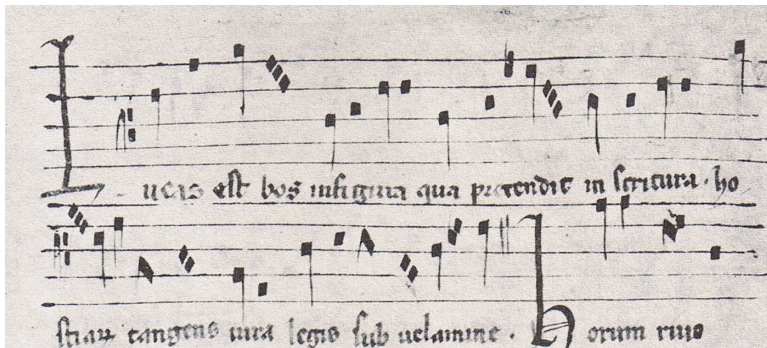 Lucas est bos in figura qua pretendit in scritura. ho
stiaꝝ tangens iura legis sub uelamine. Horum riuo